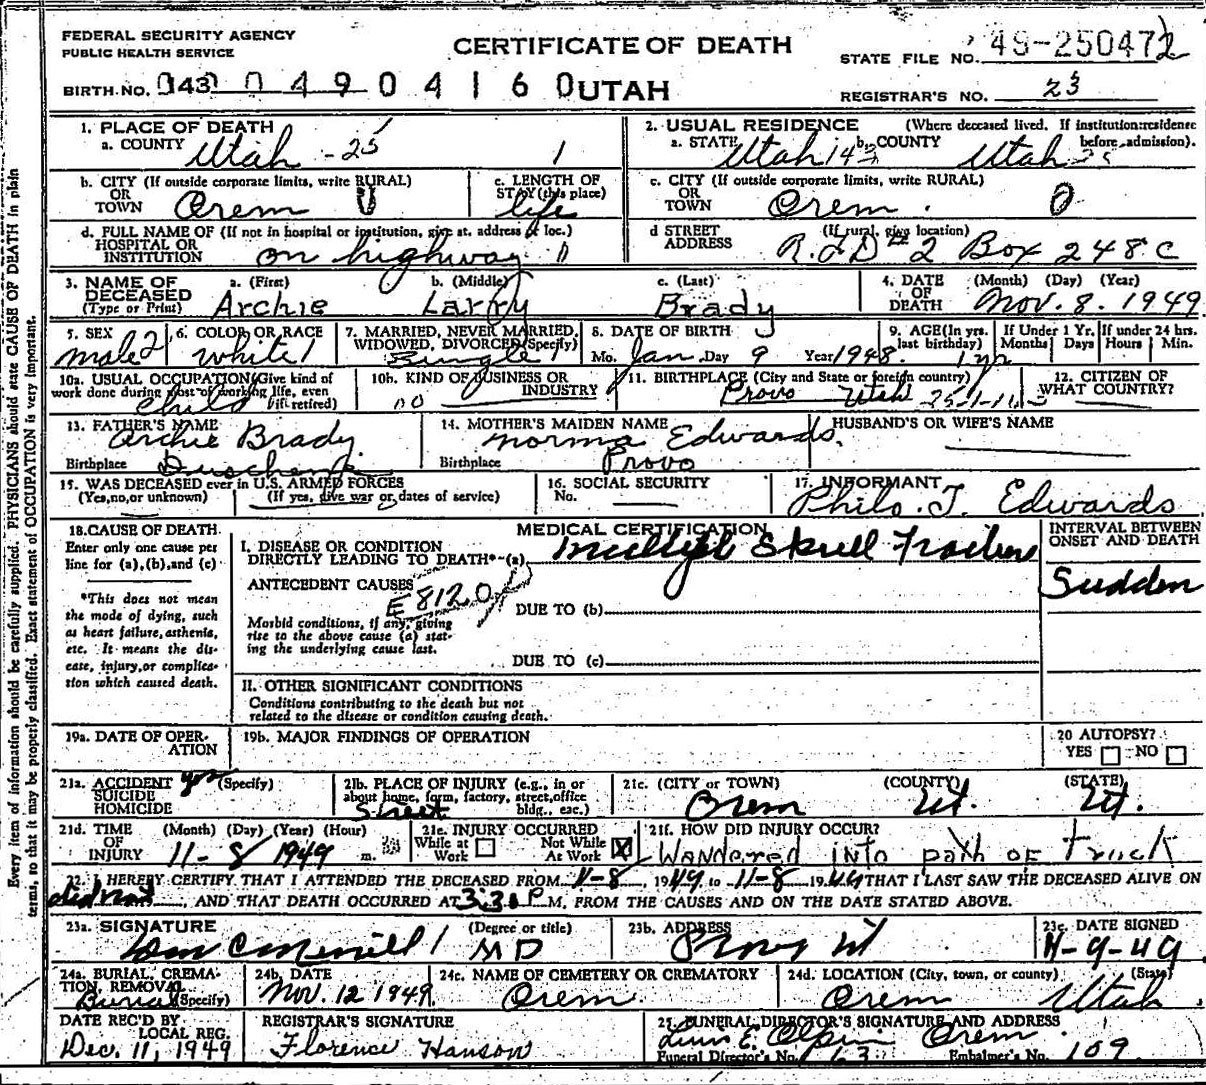 FEDERAL SECURITY AGENCY
PUBLIC HEALTH SERVICE
CERTIFICATE OF DEATH
STATE FILE NO. 49-250472
BIRTH NO. 143 04904160 UTAH
REGISTRAR'S NO. 23
1. PLACE OF DEATH
a. COUNTY Utah - 25 1
2. USUAL RESIDENCE (Where deceased lived. If institution: residence before admission).
a. STATE Utah 143 b. COUNTY Utah
b. CITY (If outside corporate limits, write RURAL) OR TOWN Orem 0
c. LENGTH OF STAY (this place) life
c. CITY (If outside corporate limits, write RURAL) OR TOWN Orem. 0
d. FULL NAME OF (If not in hospital or institution, give st. address or loc.) HOSPITAL OR INSTITUTION on highway
d STREET ADDRESS (If rural, give location) R.F.D #2 Box 248 C
3. NAME OF DECEASED (Type or Print)
a. (First) Archie
b. (Middle) Larry
c. (Last) Brady
4. DATE OF DEATH (Month) (Day) (Year) Nov. 8. 1949
5. SEX male 2
6. COLOR OR RACE white 1
7. MARRIED, NEVER MARRIED, WIDOWED, DIVORCED (Specify) Single 1
8. DATE OF BIRTH Mo. Jan. Day 9 Year 1948.
9. AGE (In yrs. last birthday) 1 yr
If Under 1 Yr. Months Days
If under 24 hrs. Hours Min.
10a. USUAL OCCUPATION (Give kind of work done during most of working life, even if retired) Child
10b. KIND OF BUSINESS OR INDUSTRY no
11. BIRTHPLACE (City and State or foreign country) Provo Utah
12. CITIZEN OF WHAT COUNTRY?
13. FATHER'S NAME Archie Brady.
Birthplace
14. MOTHER'S MAIDEN NAME Norma Edwards.
Birthplace Provo
HUSBAND'S OR WIFE'S NAME
15. WAS DECEASED ever in U.S. ARMED FORCES
(Yes, no, or unknown) (If yes, give war or dates of service)
16. SOCIAL SECURITY No.
17. INFORMANT
Philo. T. Edwards
18. CAUSE OF DEATH
Enter only one cause per line for (a), (b), and (c)
*This does not mean the mode of dying, such as heart failure, asthenia, etc. It means the disease, injury, or complication which caused death.
MEDICAL CERTIFICATION
I. DISEASE OR CONDITION DIRECTLY LEADING TO DEATH* (a) Multiple Skull Fracture
ANTECEDENT CAUSES
E 8120
Morbid conditions, if any, giving rise to the above cause (a) stating the underlying cause last.
DUE TO (b)
DUE TO (c)
INTERVAL BETWEEN ONSET AND DEATH
Sudden
II. OTHER SIGNIFICANT CONDITIONS
Conditions contributing to the death but not related to the disease or condition causing death.
19a. DATE OF OPERATION
19b. MAJOR FINDINGS OF OPERATION
20 AUTOPSY?
YES NO
21a. ACCIDENT yes (Specify)
SUICIDE
HOMICIDE
21b. PLACE OF INJURY (e.g., in or about home, farm, factory, street, office bldg., eac.) Street
21c. (CITY or TOWN) (COUNTY) (STATE)
Orem Ut. Ut.
21d. TIME OF INJURY (Month) (Day) (Year) (Hour)
11-8 1949 m.
21e. INJURY OCCURRED
While at Work Not While At Work X
21f. HOW DID INJURY OCCUR?
Wandered into path of truck
22. I HEREBY CERTIFY THAT I ATTENDED THE DECEASED FROM 11-8, 1949 to 11-8, 1949 THAT I LAST SAW THE DECEASED ALIVE ON
did not, AND THAT DEATH OCCURRED AT 3:30 P M, FROM THE CAUSES AND ON THE DATE STATED ABOVE.
23a. SIGNATURE (Degree or title)
Merrill MD
23b. ADDRESS
Provo Ut
23c. DATE SIGNED
11-9-49
24a. BURIAL, CREMATION, REMOVAL (Specify) Burial
24b. DATE
Nov. 12 1949
24c. NAME OF CEMETERY OR CREMATORY
Orem
24d. LOCATION (City, town, or county) (State)
Orem Utah
DATE REC'D BY LOCAL REG.
Dec. 11, 1949
REGISTRAR'S SIGNATURE
Florence Hanson
25. FUNERAL DIRECTOR'S SIGNATURE AND ADDRESS
E. Olpin Orem.
Funeral Director's No. 163 Embalmer's No. 109
Every item of information should be carefully supplied. PHYSICIANS should state CAUSE OF DEATH in plain
terms, so that it may be properly classified. Exact statement of OCCUPATION is very important.